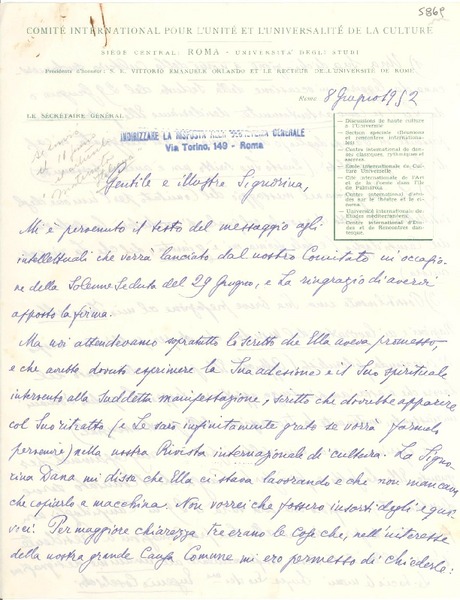 5869
COMITÉ INTERNATIONAL POUR L'UNITÉ ET L'UNIVERSALITÉ DE LA CULTURE
SIÈGE CENTRAL: ROMA - UNIVERSITÀ DEGLI STUDI
Présidents d'honneur: S. E. VITTORIO EMANUELE ORLANDO ET LE RECTEUR DE L'UNIVERSITÉ DE ROME
Rome 8 Giugno 1952
LE SECRÉTAIRE GÉNÉRAL
INDIRIZZARE LA RISPOSTA ALLA SEGRETERIA GENERALE
Via Torino, 149 - Roma
Discussions de haute culture à l'Université
Section spéciale (Examens et rencontres internationales)
Centre international de danses classiques, rythmiques et sacrées.
École internationale de Culture Universelle
Cité internationale de l'Art et de la Poésie dans l'île de
Centre international d'études sur le théâtre et le cinéma.
Université internationale des Études méditerranéennes.
Centre international d'Études et de Rencontres
Gentile e illustre Signorina,
Mi è pervenuto il testo del messaggio agli
intellettuali che verrà lanciato dal nostro Comitato in occasio-
ne della Solenne Seduta del 29 Giugno, e La ringrazio di avervi
apposto la firma.
Ma noi attendevamo sopratutto lo scritto che Ella aveva promesso,
e che avrebbe dovuto esprimere la Sua adesione e il Suo spirituale
intervento alla suddetta manifestazione, scritto che dovrebbe apparire
col Suo ritratto (e Le sarò infinitamente grato se vorrà farmelo
pervenire) nella nostra Rivista internazionale di cultura. La Signo-
rina Dana mi disse che Ella ci stava lavorando e che non mancava
che copiarlo a macchina. Non vorrei che fossero insorti degli equi-
voci! Per maggiore chiarezza, tre erano le cose che, nell'interesse
della nostra grande Causa Comune mi ero permesso di chiederle: